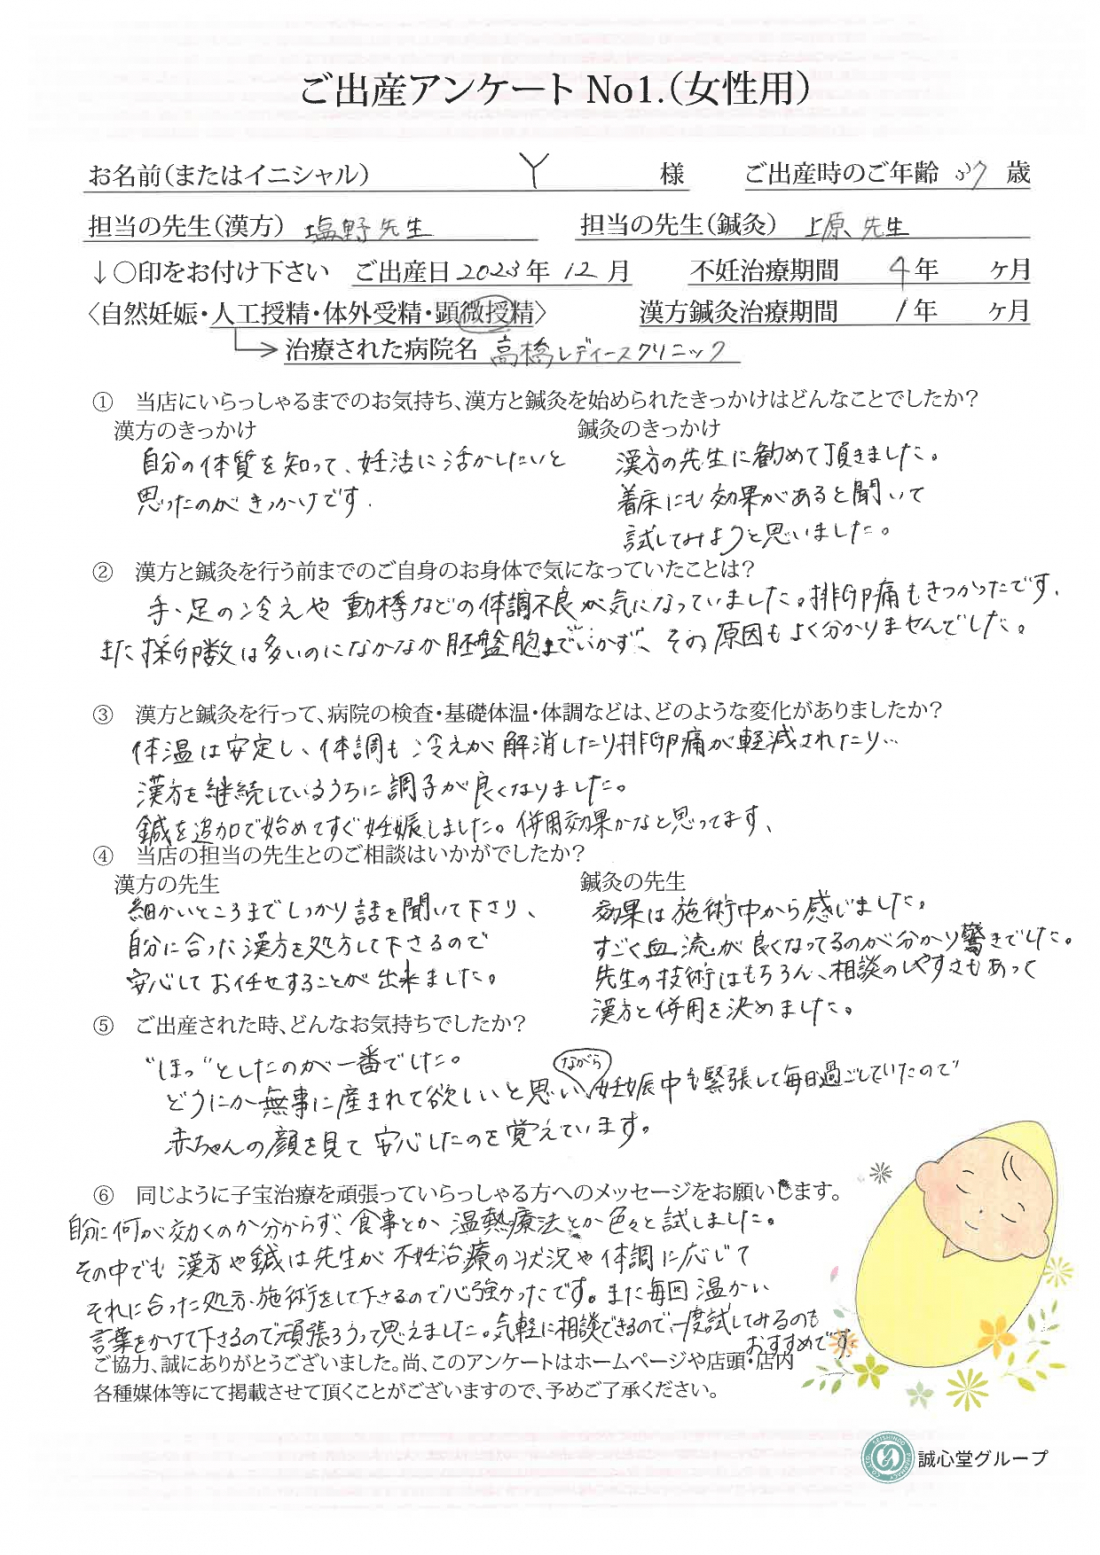 ご出産アンケートNo1.(女性用)
お名前(またはイニシャル) Y 様 ご出産時のご年齢 37 歳
担当の先生(漢方) 塩野先生 担当の先生(鍼灸) 上原先生
↓○印をお付け下さい ご出産日 2023年 12月 不妊治療期間 4年 ヶ月
〈自然妊娠・人工授精・体外受精・顕微授精〉 漢方鍼灸治療期間 1年 ヶ月
治療された病院名 高橋レディースクリニック
① 当店にいらっしゃるまでのお気持ち、漢方と鍼灸を始められたきっかけはどんなことでしたか?
漢方のきっかけ
自分の体質を知って、妊活に活かしたいと
思ったのがきっかけです.
鍼灸のきっかけ
漢方の先生に勧めて頂きました。
着床にも効果があると聞いて
試してみようと思いました。
② 漢方と鍼灸を行う前までのご自身のお身体で気になっていたことは?
手、足の冷えや動悸などの体調不良が気になっていました。排卵痛もきつかったです.
また採卵数は多いのになかなか胚盤胞までいかず、その原因もよく分かりませんでした。
③ 漢方と鍼灸を行って、病院の検査・基礎体温・体調などは、どのような変化がありましたか?
体温は安定し、体調も冷えが解消したり排卵痛が軽減されたり…
漢方を継続しているうちに調子が良くなりました。
鍼を追加で始めてすぐ妊娠しました。併用効果かなと思ってます、
④ 当店の担当の先生とのご相談はいかがでしたか?
漢方の先生
細かいところまでしっかり話を聞いて下さり、
自分に合った漢方を処方して下さるので
安心してお任せすることが出来ました。
鍼灸の先生
効果は施術中から感じました。
すごく血流が良くなってるのが分かり驚きでした。
先生の技術はもちろん、相談のしやすさもあって
漢方と併用を決めました。
⑤ ご出産された時、どんなお気持ちでしたか?
"ほっ"としたのが一番でした。
どうにか無事に産まれて欲しいと思いながら、妊娠中も緊張して毎日過ごしていたので
赤ちゃんの顔を見て安心したのを覚えています。
⑥ 同じように子宝治療を頑張っていらっしゃる方へのメッセージをお願いします。
自分に何が効くのか分からず、食事とか温熱療法とか色々と試しました。
その中でも漢方や鍼は先生が不妊治療の状況や体調に応じて
それに合った処方、施術をして下さるので心強かったです。また毎回温かい
言葉をかけて下さるので頑張ろうって思えました。気軽に相談できるので、一度試してみるのも
おすすめです
ご協力、誠にありがとうございました。尚、このアンケートはホームページや店頭・店内
各種媒体等にて掲載させて頂くことがございますので、予めご了承ください。
誠心堂グループ